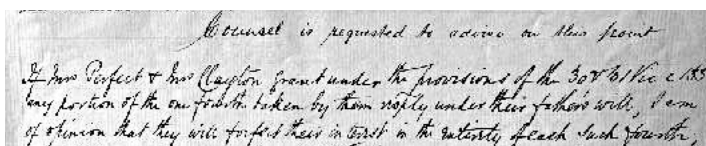 Counsel is requested to advise on this point
If Mrs Perfect & Mrs Clayton grant under the provisions of the 30 & 31 Vic c 133
any portion of the one fourth taken by them resply under their father's will, I am
of opinion that they will forfeit their interest in the entirety of each such fourth,